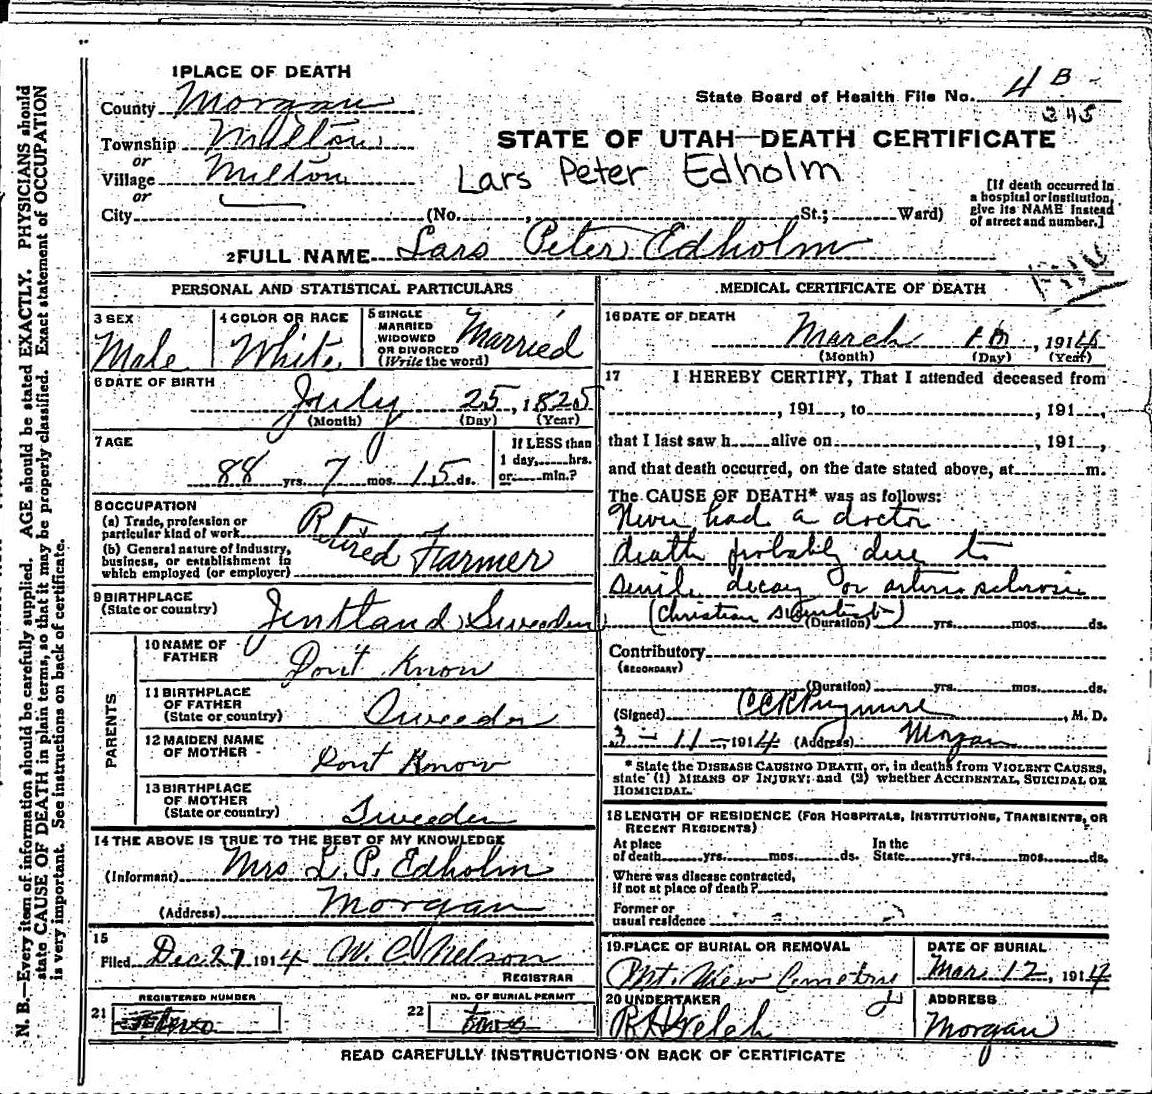 1 PLACE OF DEATH
County Morgan
State Board of Health File No. 4 B
345
Township Milton
or
Village Milton
or
STATE OF UTAH—DEATH CERTIFICATE
Lars Peter Edholm
City (No. , St.; Ward)
[If death occurred in
a hospital or institution,
give its NAME instead
of street and number.]
2 FULL NAME Lars Peter Edholm
PERSONAL AND STATISTICAL PARTICULARS
3 SEX
Male
4 COLOR OR RACE
White
5 SINGLE
MARRIED
WIDOWED
OR DIVORCED
(Write the word)
Married
6 DATE OF BIRTH
July 25, 1825
(Month) (Day) (Year)
7 AGE
88 yrs. 7 mos. 15 ds.
If LESS than
1 day, hrs.
or min.?
8 OCCUPATION
(a) Trade, profession or
particular kind of work
(b) General nature of industry,
business, or establishment in
which employed (or employer)
Retired Farmer
9 BIRTHPLACE
(State or country) Jentland Sweeden
PARENTS
10 NAME OF
FATHER Don't Know
11 BIRTHPLACE
OF FATHER
(State or country) Sweeden
12 MAIDEN NAME
OF MOTHER Dont Know
13 BIRTHPLACE
OF MOTHER
(State or country) Sweeden
14 THE ABOVE IS TRUE TO THE BEST OF MY KNOWLEDGE
(Informant) Mrs L. P. Edholm
(Address) Morgan
15
Filed Dec 27 1914 W. C. Nelson
REGISTRAR
21 REGISTERED NUMBER
22 NO. OF BURIAL PERMIT
MEDICAL CERTIFICATE OF DEATH
16 DATE OF DEATH
March 10, 1914
(Month) (Day) (Year)
17 I HEREBY CERTIFY, That I attended deceased from
, 191 , to , 191 ,
that I last saw h alive on , 191 ,
and that death occurred, on the date stated above, at m.
The CAUSE OF DEATH* was as follows:
Never had a doctor
death probably due to
senile decay or arterio sclerosis
(Christian Scientist)
(Duration) yrs. mos. ds.
Contributory
(SECONDARY)
(Duration) yrs. mos. ds.
(Signed) , M. D.
3-11-, 1914 (Address) Morgan
* State the DISEASE CAUSING DEATH, or, in deaths from VIOLENT CAUSES,
state (1) MEANS OF INJURY; and (2) whether ACCIDENTAL, SUICIDAL OR
HOMICIDAL.
18 LENGTH OF RESIDENCE (FOR HOSPITALS, INSTITUTIONS, TRANSIENTS, OR
RECENT RESIDENTS)
At place
of death yrs. mos. ds.
In the
State yrs. mos. ds.
Where was disease contracted,
if not at place of death?
Former or
usual residence
19 PLACE OF BURIAL OR REMOVAL
Mt. View Cemetery
DATE OF BURIAL
Mar. 12, 1914
20 UNDERTAKER
R H Welch
ADDRESS
Morgan
READ CAREFULLY INSTRUCTIONS ON BACK OF CERTIFICATE
N. B.—Every item of information should be carefully supplied. AGE should be stated EXACTLY. PHYSICIANS should
state CAUSE OF DEATH in plain terms, so that it may be properly classified. Exact statement of OCCUPATION
is very important. See instructions on back of certificate.